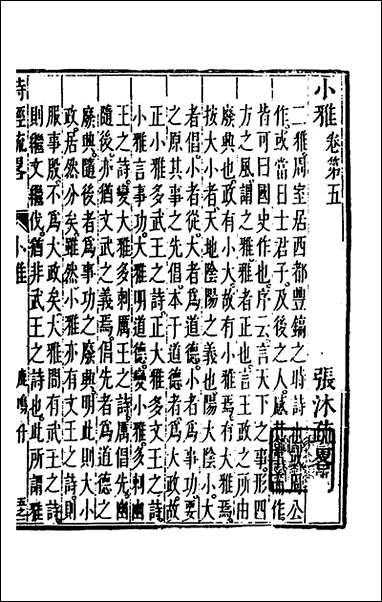 小雅 卷第五
張沐疏畧
二雅周室居西都豐鎬之時詩也公
作或當日士君子及後之人感作
皆可曰國史作也序云言天下之事形四
方之風謂之雅雅者正也言王政之所由
廢興也政有小大故有小雅焉有大雅焉
按大小者天地陰陽之義也陽大陰小大
者倡小者從大者為道德小者為事功要
之原其事之先倡本于道德者為大政故
正小雅多武王之詩正大雅多文王之詩
小雅言事功大雅明道德變小雅多刺幽
王之詩變大雅多刺厲王之詩厲倡先幽
隨後亦猶文武之義焉倡先者為道德之
廢興隨後者為事功之廢興明此則大小
政居然分矣雖然小雅亦有文王之詩則
服事殷不為大政矣大雅間有武王之詩
則繼文繼伐猶非武王之詩也此所謂雅
詩經疏畧 小雅 鹿鳴什 五之一